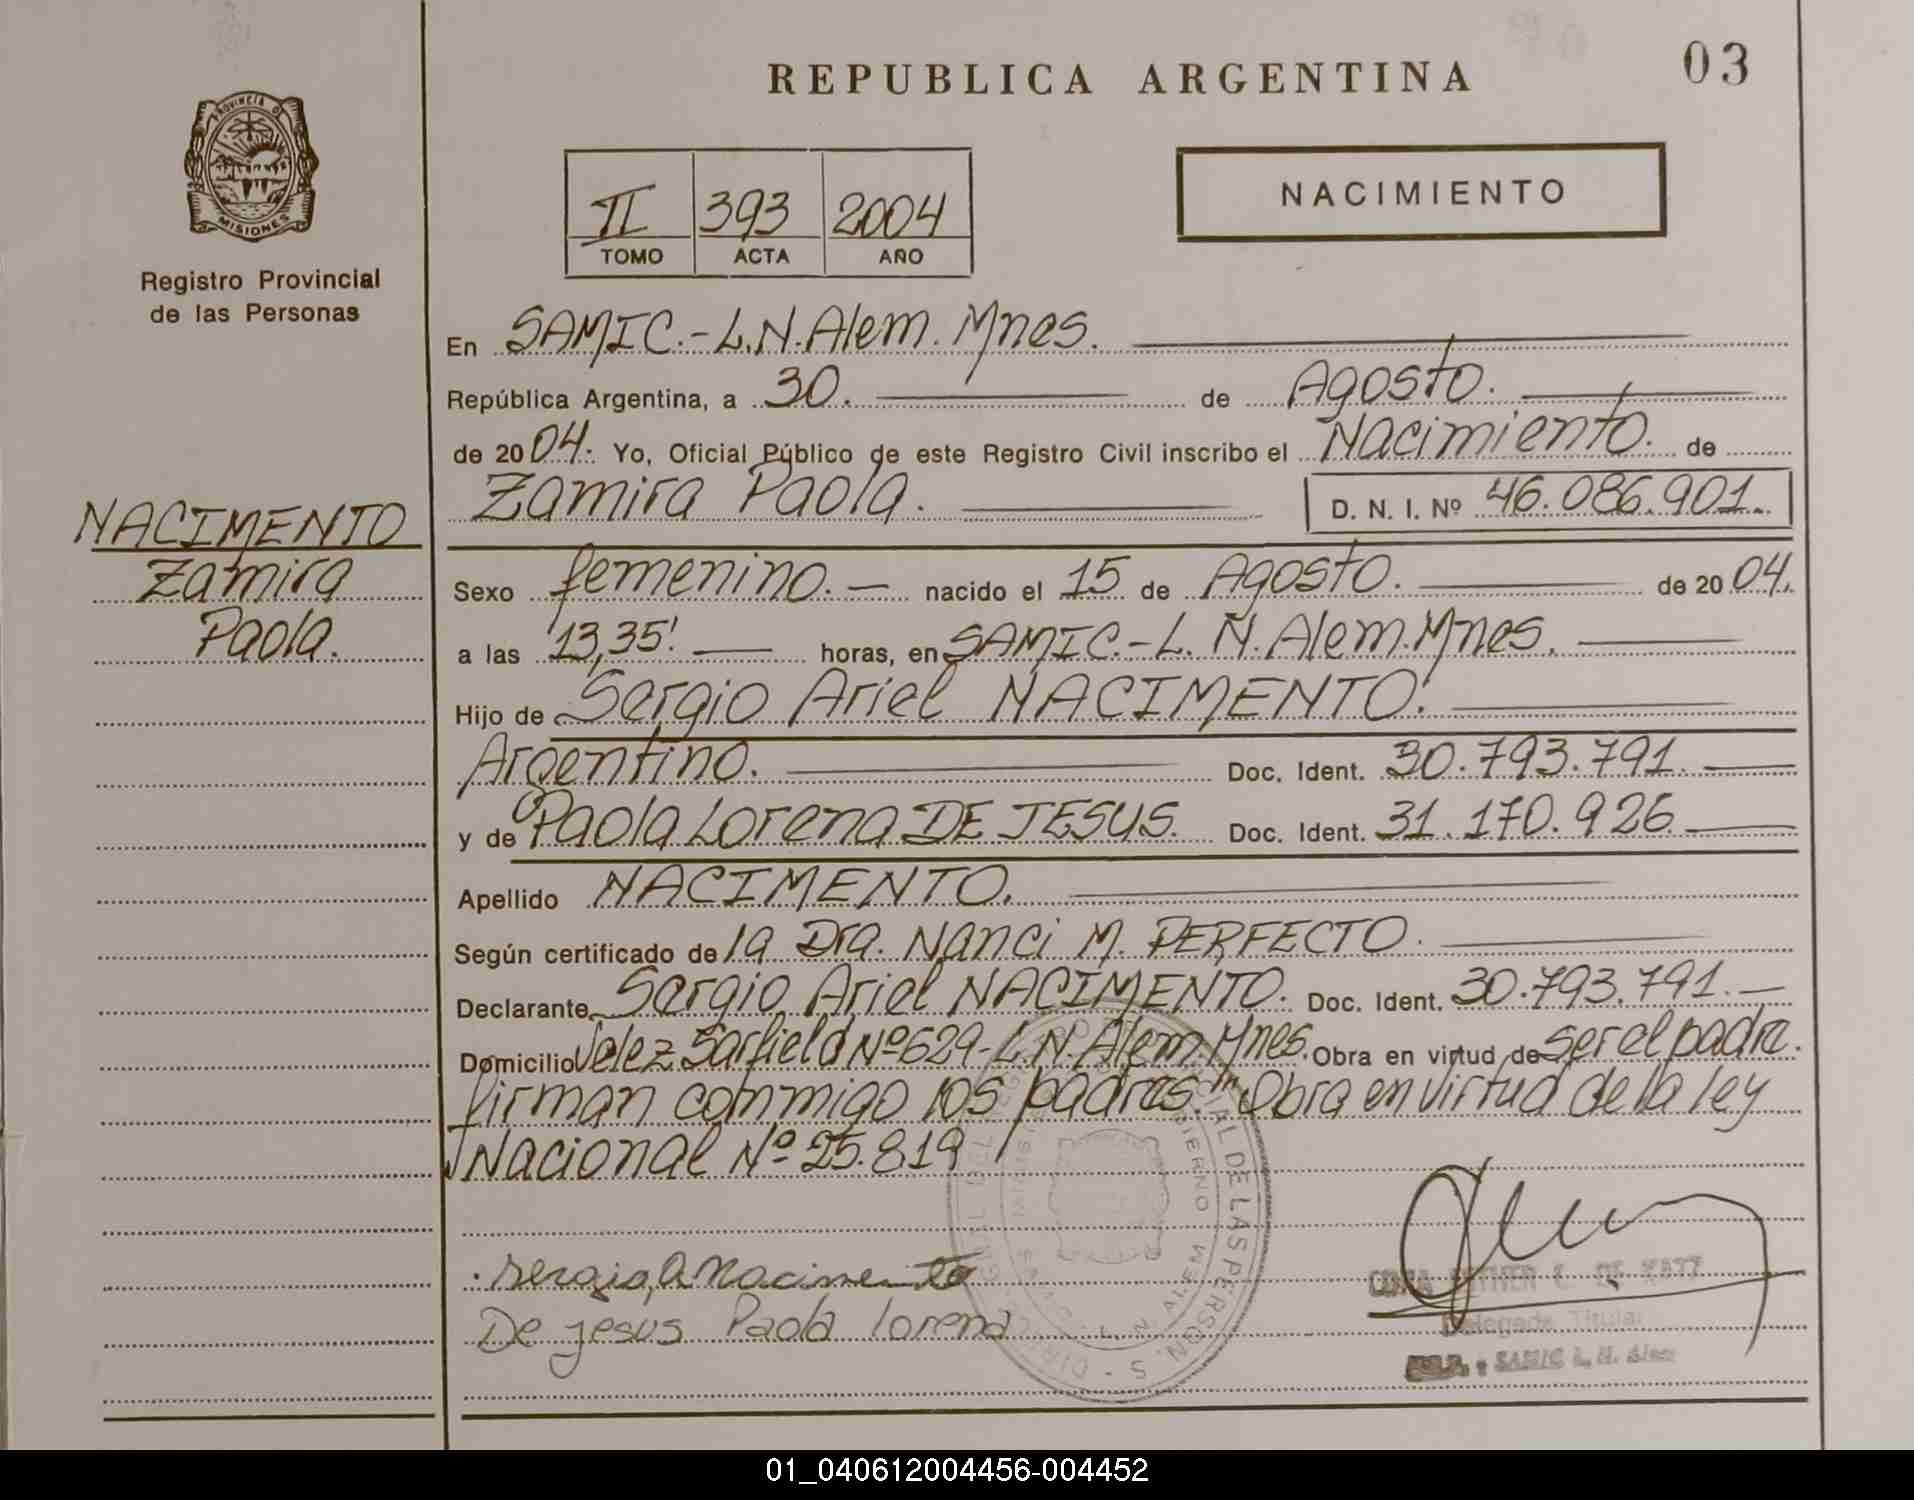 03
REPUBLICA ARGENTINA
PROVINCIA DE
MISIONES
Registro Provincial
de las Personas
II 393 2004
TOMO ACTA AÑO
NACIMIENTO
En SAMIC.-L.N.Alem. Mnes.
República Argentina, a 30. de Agosto.
de 2004. Yo, Oficial Público de este Registro Civil inscribo el Nacimiento. de
Zamira Paola. D. N. I. Nº 46.086.901.
NACIMENTO
Zamira
Paola.
Sexo femenino. nacido el 15 de Agosto. de 2004.
a las 13,35' horas, en SAMIC.-L. N. Alem. Mnes.
Hijo de Sergio Ariel NACIMENTO.
Argentino. Doc. Ident. 30.793.791.
y de Paola Lorena DE JESUS. Doc. Ident. 31.170.926
Apellido NACIMENTO.
Según certificado de la Dra. Nanci M. PERFECTO.
Declarante Sergio Ariel NACIMENTO. Doc. Ident. 30.793.791.
Domicilio Velez Sarfield Nº 629-L.N. Alem. Mnes. Obra en virtud de ser el padre.
firman commigo los padres." Obra en virtud de la ley
Nacional Nº 25.819
Sergio, A Nacimento
De jesus Paola lorena
DE
Delegada Titular
SAMIC L. N. Alem
01_040612004456-004452